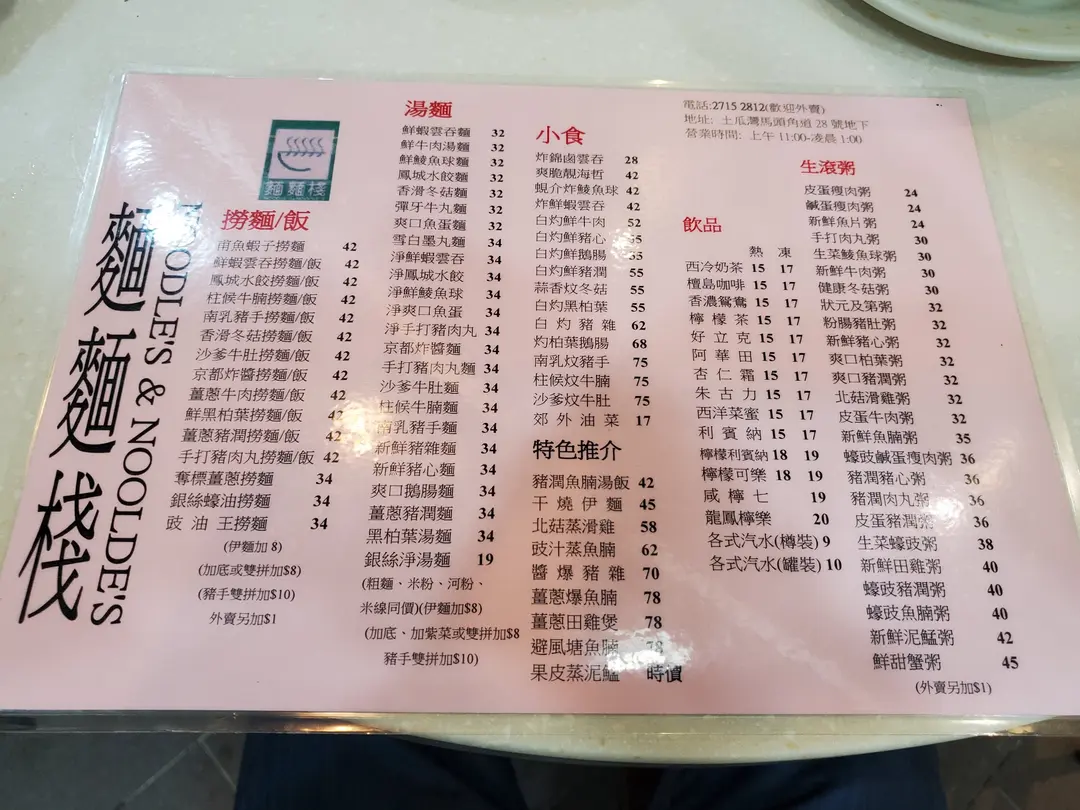 麵麵棧
NOODLE'S & NOOLDE'S
麵麵棧
撈麵/飯
甫魚蝦子撈麵 42
鮮蝦雲吞撈麵/飯 42
鳳城水餃撈麵/飯 42
柱候牛腩撈麵/飯 42
南乳豬手撈麵/飯 42
香滑冬菇撈麵/飯 42
沙爹牛肚撈麵/飯 42
京都炸醬撈麵/飯 42
薑蔥牛肉撈麵/飯 42
鮮黑柏葉撈麵/飯 42
薑蔥豬潤撈麵/飯 42
手打豬肉丸撈麵/飯 42
奪標薑蔥撈麵 34
銀絲蠔油撈麵 34
豉油王撈麵 34
(伊麵加 8)
(加底或雙拼加$8)
(豬手雙拼加$10)
外賣另加$1
湯麵
鮮蝦雲吞麵 32
鮮牛肉湯麵 32
鮮鯪魚球麵 32
鳳城水餃麵 32
香滑冬菇麵 32
彈牙牛丸麵 32
爽口魚蛋麵 32
雪白墨丸麵 34
淨鮮蝦雲吞 34
淨鳳城水餃 34
淨鮮鯪魚球 34
淨爽口魚蛋 34
淨手打豬肉丸 34
京都炸醬麵 34
手打豬肉丸麵 34
沙爹牛肚麵 34
柱候牛腩麵 34
南乳豬手麵 34
新鮮豬雜麵 34
新鮮豬心麵 34
爽口鵝腸麵 34
薑蔥豬潤麵 34
黑柏葉湯麵 34
銀絲淨湯麵 19
(粗麵、米粉、河粉、
米線同價)(伊麵加$8)
(加底、加紫菜或雙拼加$8
豬手雙拼加$10)
小食
炸錦鹵雲吞 28
爽脆靚海哲 42
蜆介炸鯪魚球 42
炸鮮蝦雲吞 42
白灼鮮牛肉 52
白灼鮮豬心 55
白灼鮮鵝腸 55
白灼鮮豬潤 55
蒜香炆冬菇 55
白灼黑柏葉 55
白灼豬雜 62
灼柏葉鵝腸 68
南乳炆豬手 75
柱候炆牛腩 75
沙爹炆牛肚 75
郊外油菜 17
特色推介
豬潤魚腩湯飯 42
干燒伊麵 45
北菇蒸滑雞 58
豉汁蒸魚腩 62
醬爆豬雜 70
薑蔥爆魚腩 78
薑蔥田雞煲 78
避風塘魚腩 78
果皮蒸泥鯭 時價
電話:2715 2812(歡迎外賣)
地址: 土瓜灣馬頭角道 28 號地下
營業時間: 上午 11:00-凌晨 1:00
飲品
熱 凍
西冷奶茶 15 17
檀島咖啡 15 17
香濃鴛鴦 15 17
檸檬茶 15 17
好立克 15 17
阿華田 15 17
杏仁霜 15 17
朱古力 15 17
西洋菜蜜 15 17
利賓納 15 17
檸檬利賓納 18 19
檸檬可樂 18 19
咸檸七 19
龍鳳檸樂 20
各式汽水(樽裝) 9
各式汽水(罐裝) 10
生滾粥
皮蛋瘦肉粥 24
鹹蛋瘦肉粥 24
新鮮魚片粥 24
手打肉丸粥 30
生菜鯪魚球粥 30
新鮮牛肉粥 30
健康冬菇粥 30
狀元及第粥 32
粉腸豬肚粥 32
新鮮豬心粥 32
爽口柏葉粥 32
爽口豬潤粥 32
北菇滑雞粥 32
皮蛋牛肉粥 32
新鮮魚腩粥 35
蠔豉鹹蛋瘦肉粥 36
豬潤豬心粥 36
豬潤肉丸粥 36
皮蛋豬潤粥 36
生菜蠔豉粥 38
新鮮田雞粥 40
蠔豉豬潤粥 40
蠔豉魚腩粥 40
新鮮泥鯭粥 42
鮮甜蟹粥 45
(外賣另加$1)